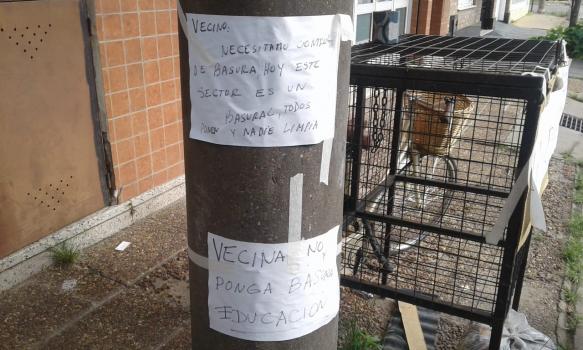 VECINO.
NECESITAMO CONTE
DE BASURA HOY ESTE
SECTOR ES UN
BASURAL, TODOS
PONEN Y NADIE LIMPIA
VECINA NO
PONGA BASURA Y
EDUCACION